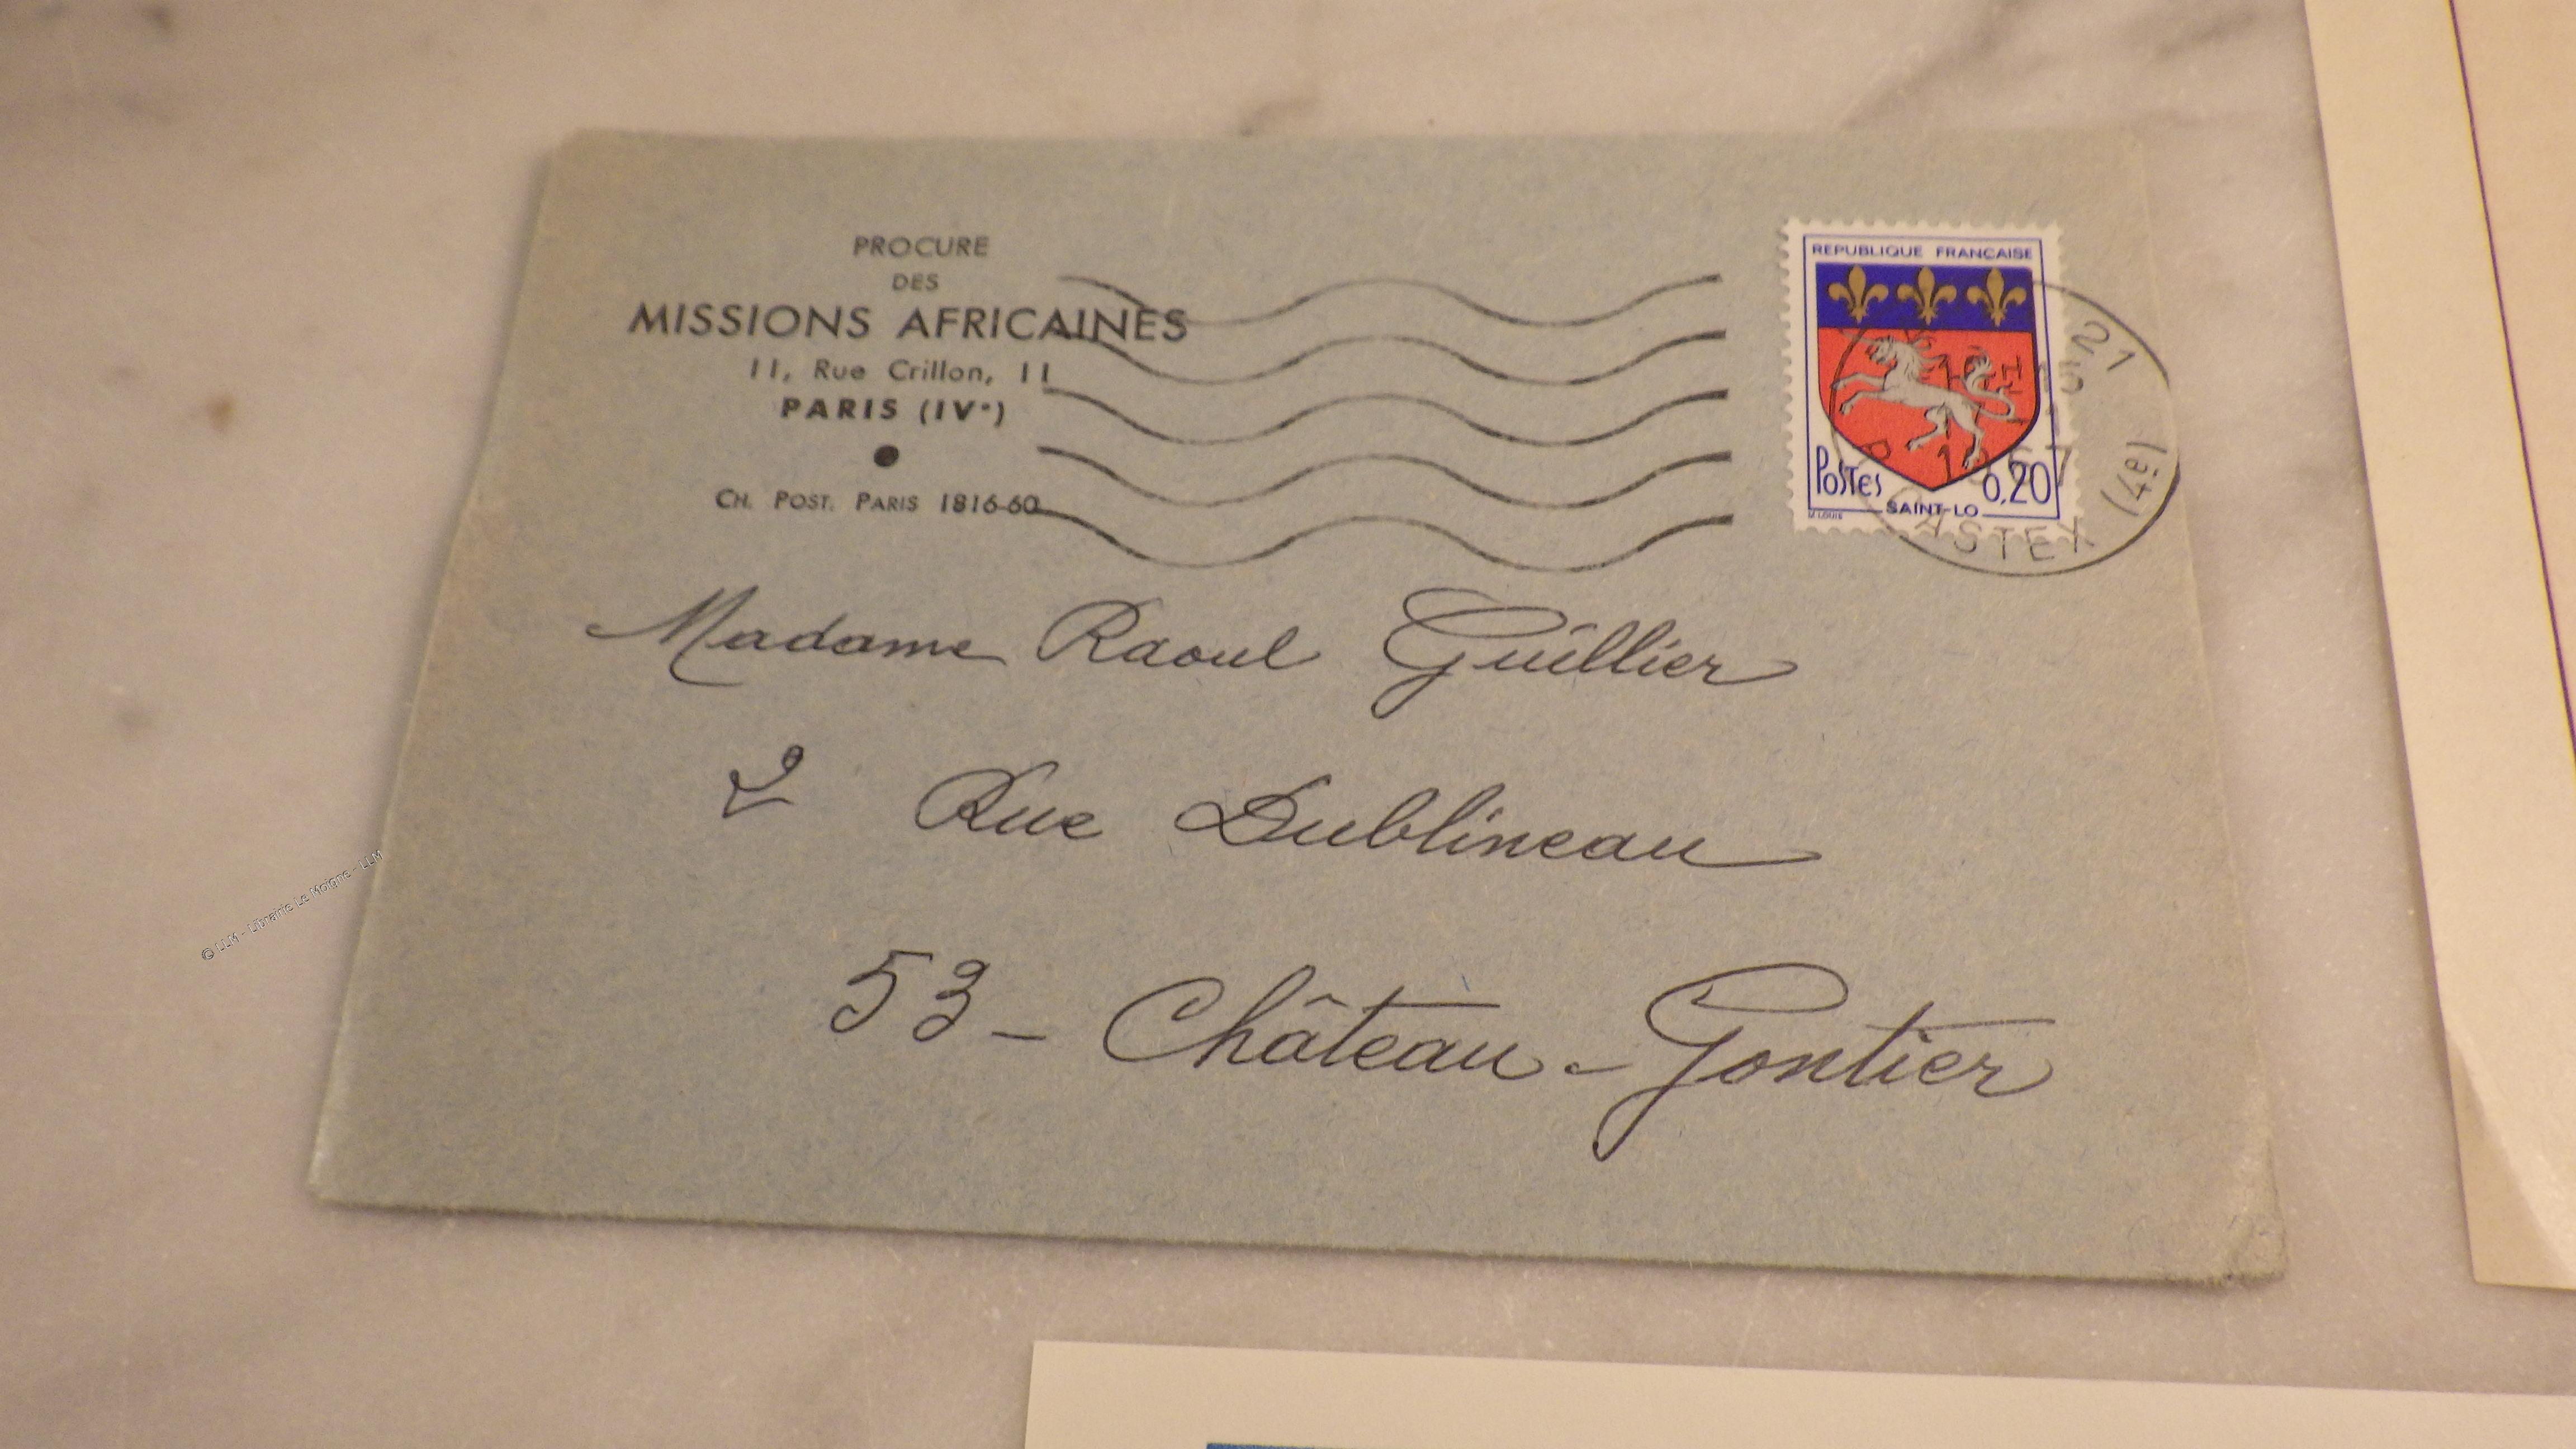 PROCURE
DES
MISSIONS AFRICAINES
11, Rue Crillon, 11
PARIS (IVe)
CH. POST. PARIS 1816-60
REPUBLIQUE FRANCAISE
POSTES
0,20
SAINT-LO
M. LOUIS
21
CASTEX
(4e)
Madame Raoul Guillier
2 Rue Dublineau
53 - Château-Gontier
© LLM - Librairie Le Moigne - LLM